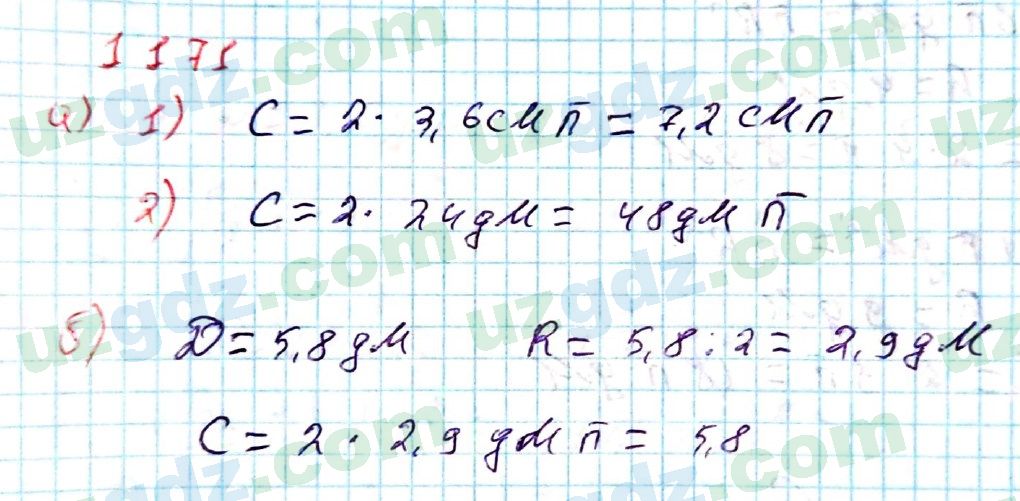 1171
а) 1) C = 2 · 3,6смπ = 7,2 смπ
2) C = 2 · 24дм = 48дм π
б) D = 5,8 дм R = 5,8 : 2 = 2,9дм
C = 2 · 2,9 дм π = 5,8
uzgdz.com